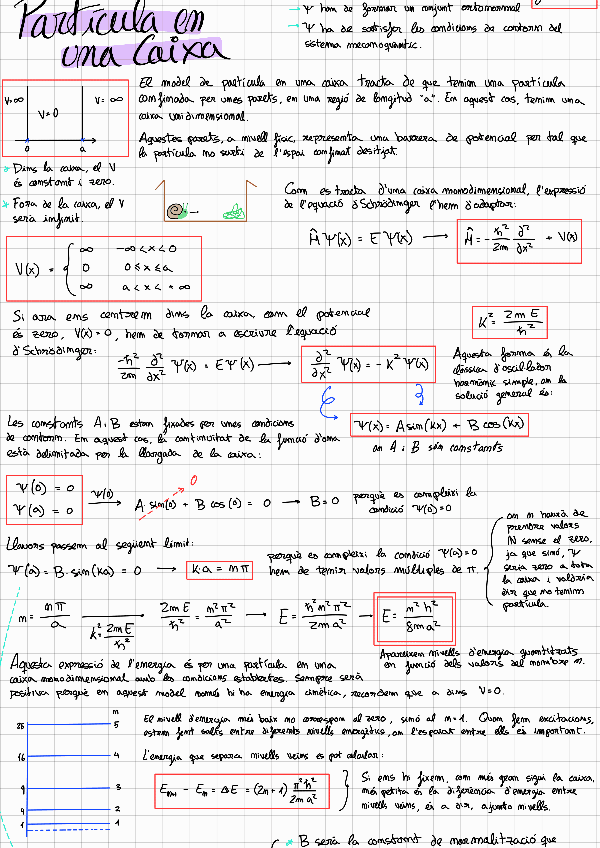 Partícula en
una Caixa
→ Ψ hem de formar un conjunt ortonormal
→ Ψ ha de satisfer les condicions de contorn del
sistema mecanoquàntic.
El model de partícula en una caixa tracta de que tenim una partícula
confinada per unes parets, en una regió de longitud "a". En aquest cas, tenim una
caixa unidimensional.
V=∞ V=0 V=∞
0 a
Aquestes parets, a nivell físic, representa una barrera de potencial per tal que
la partícula no surti de l'espai confinat desitjat.
* Dins la caixa, el V
és constant i zero.
* Fora de la caixa, el V
serà infinit.
Com es tracta d'una caixa monodimensional, l'expressió
de l'equació d'Schrödinger l'hem d'adaptar:
Ĥ Ψ(x) = E Ψ(x) → Ĥ = -ħ²/2m ∂²/∂x² + V(x)
V(x) = { ∞ -∞<x<0
0 0≤x≤a
∞ a<x<+∞
Si ara ens centrem dins la caixa, com el potencial
és zero, V(x)=0, hem de tornar a escriure l'equació
d'Schrödinger:
K² = 2mE/ħ²
-ħ²/2m ∂²/∂x² Ψ(x) = E Ψ(x) → ∂²/∂x² Ψ(x) = -K² Ψ(x)
Aquesta forma és la
clàssica d'oscil·lador
harmònic simple, on la
solució general és:
Ψ(x) = A sin(Kx) + B cos(Kx)
on A i B són constants
Les constants A i B estan fixades per unes condicions
de contorn. En aquest cas, la continuïtat de la funció d'ona
està delimitada per la llargada de la caixa:
Ψ(0) = 0
Ψ(a) = 0
Ψ(0) → A sin(0) + B cos(0) = 0 → B=0
0
perquè es compleixi la
condició Ψ(0)=0
Llavors passem al següent límit:
Ψ(a) = B·sin(ka) = 0 → k·a = nπ
perquè es compleixi la condició Ψ(a)=0
hem de tenir valors múltiples de π.
on n haurà de
prendre valors
N sense el zero,
ja que sinó, Ψ
seria zero a tota
la caixa i valdria
dir que no tenim
partícula.
m = mπ/a → k²=2mE/ħ² 2mE/ħ² = n²π²/a² → E = ħ²n²π²/2ma² → E = n²h²/8ma²
Apareixen nivells d'energia quantitzats
en funció dels valors del nombre n.
Aquesta expressió de l'energia és per una partícula en una
caixa monodimensional amb les condicions establertes. Sempre serà
positiva perquè en aquest model només hi ha energia cinètica, recordem que a dins V=0.
n
25 5
16 4
9 3
4 2
1 1
El nivell d'energia més baix no correspon al zero, sinó al n=1. Quan fem excitacions,
estem fent salts entre diferents nivells energètics, on l'espaiat entre ells és important.
L'energia que separa nivells veïns es pot calcular:
Eₙ₊₁ - Eₙ = ΔE = (2n+1) π²ħ²/2ma²
Si ens hi fixem, com més gran sigui la caixa,
més petita és la diferència d'energia entre
nivells veïns, és a dir, ajunto nivells.
* B serà la constant de normalització que